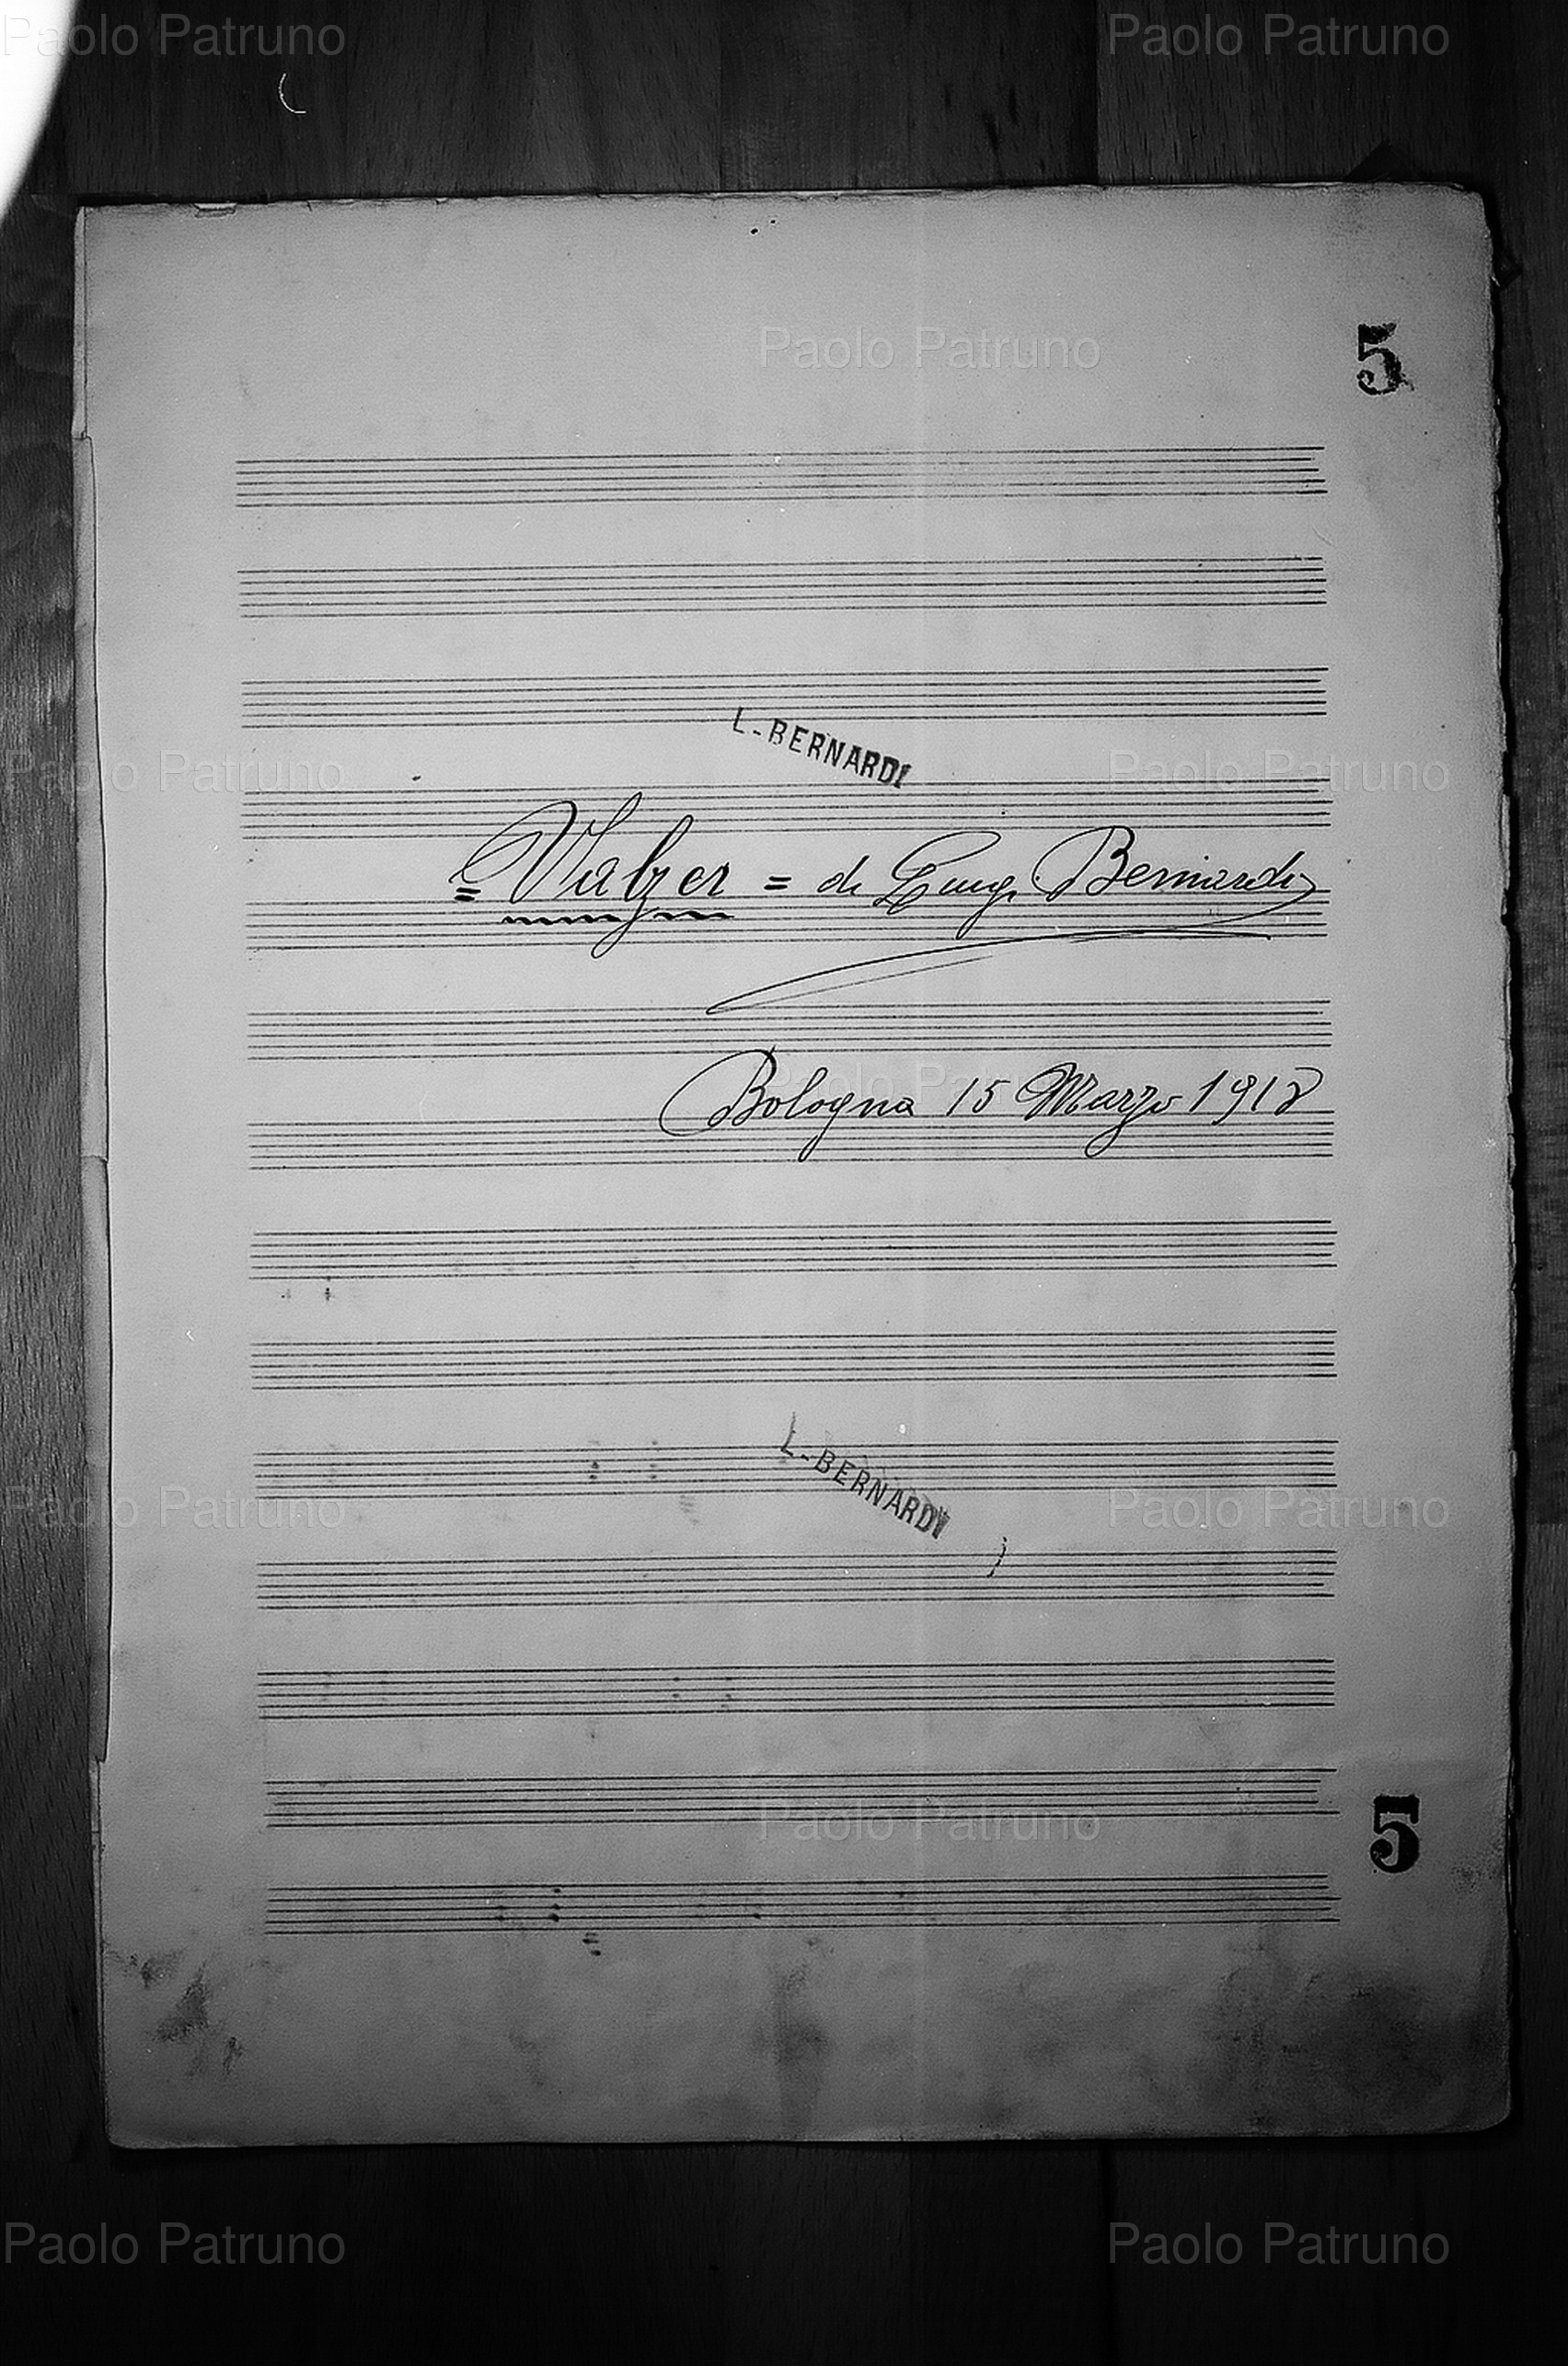 Paolo Patruno Paolo Patruno
5
Paolo Patruno
L-BERNARDI
Paolo Patruno Paolo Patruno
= Valzer = di Luigi Bernardi
Paolo Patruno
Bologna 15 Marzo 1918
L-BERNARDI
Paolo Patruno Paolo Patruno
Paolo Patruno
5
Paolo Patruno Paolo Patruno